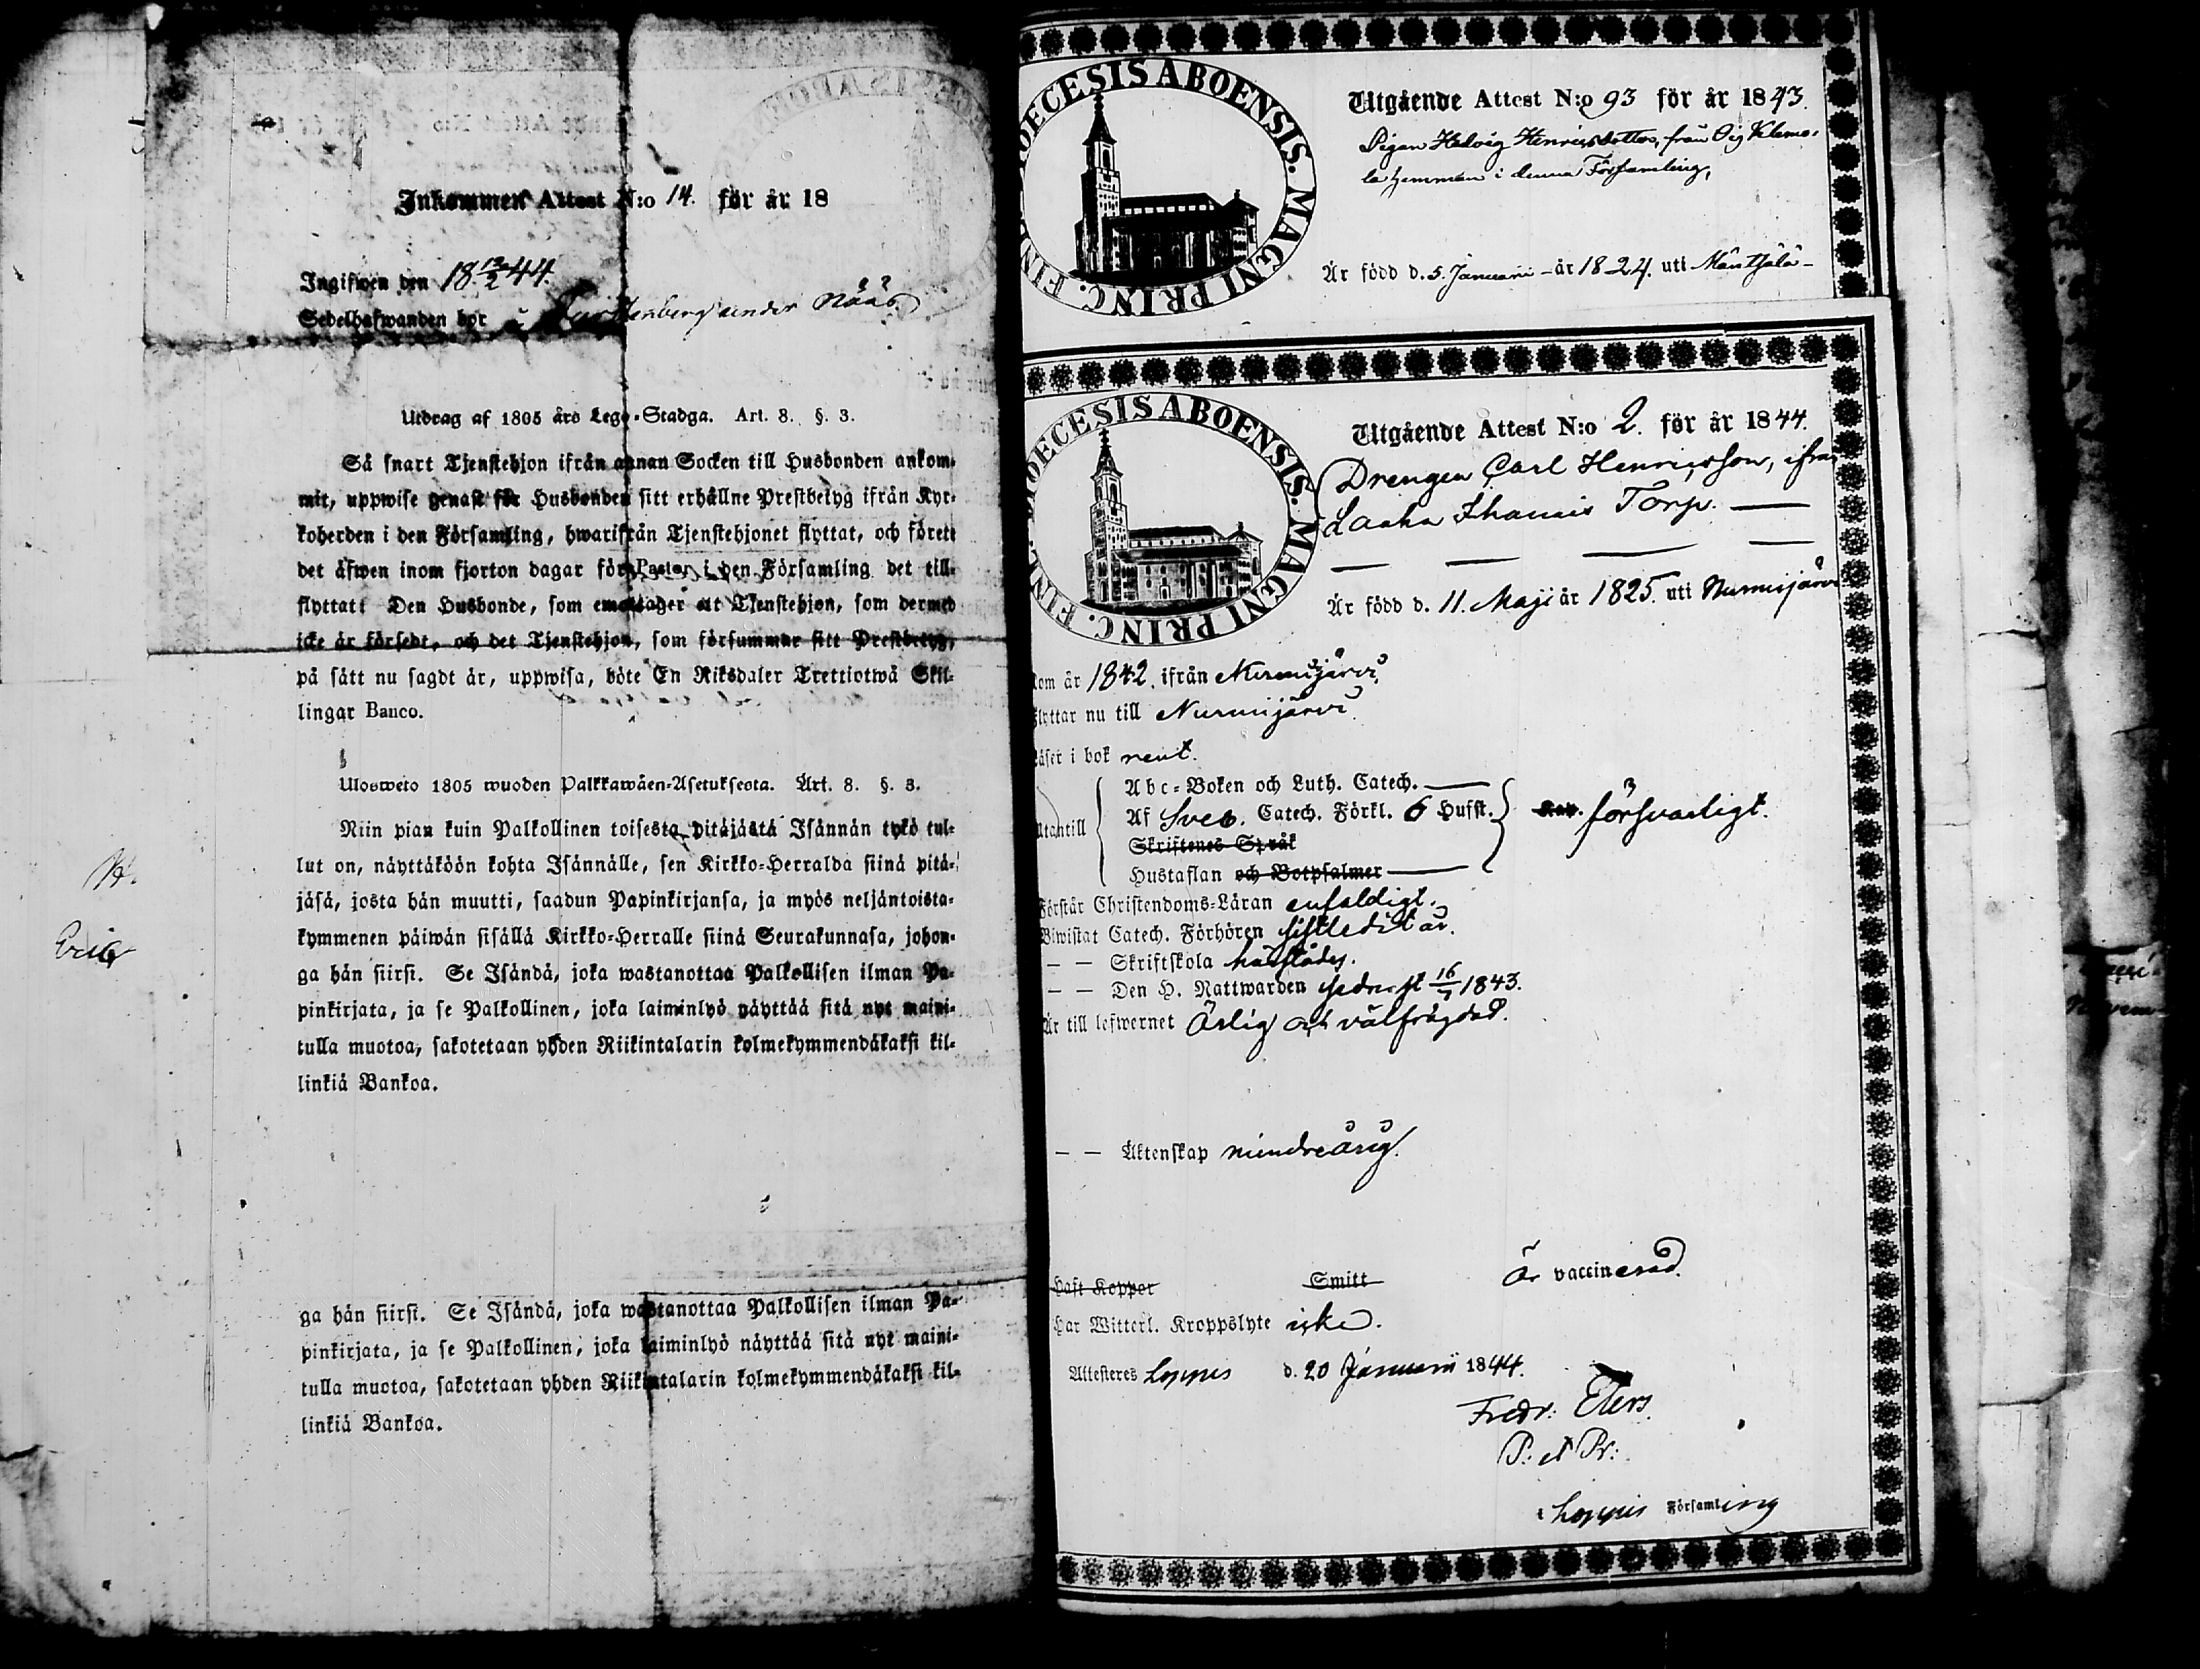 Inkommen Attest N:o 14. för år 18
Ingifwen den 18 13/2 44.
Sedelhafwanden bor i under Nääs
Utdrag af 1805 års Lego-Stadga. Art. 8. §. 3.
Så snart Tjenstehjon ifrån annan Socken till Husbonden ankom-
mit, uppwise genast för Husbonden sitt erhållne Prestbetyg ifrån Kyr-
koherden i den Församling, hwarifrån Tjenstehjonet flyttat, och förete
det äfwen inom fjorton dagar för Pastor i den Församling det till-
flyttat: Den Husbonde, som emottager ett Tjenstehjon, som dermed
icke är försedt, och det Tjenstehjon, som försummar sitt Prestbetyg,
på sätt nu sagdt är, uppwisa, böte En Riksdaler Trettiotwå Skil-
lingar Banco.
Ulosweto 1805 wuoden Palkkawäen-Asetuksesta. Art. 8. §. 3.
Niin pian kuin Palkollinen toisesta pitäjästä Isännän tykö tul-
lut on, näyttäköön kohta Isännälle, sen Kirkko-Herralda siinä pitä-
jäsä, josta hän muutti, saadun Papinkirjansa, ja myös neljäntoista-
kymmenen päiwän sisällä Kirkko-Herralle siinä Seurakunnasa, johon-
ga hän siirsi. Se Isändä, joka wastanottaa Palkollisen ilman Pa-
pinkirjata, ja se Palkollinen, joka laiminlyö näyttää sitä nyt maini-
tulla muotoa, sakotetaan yhden Riikintalarin kolmekymmendäkaksi kil-
linkiä Bankoa.
ga hän siirsi. Se Isändä, joka wastanottaa Palkollisen ilman Pa-
pinkirjata, ja se Palkollinen, joka laiminlyö näyttää sitä nyt maini-
tulla muotoa, sakotetaan yhden Riikintalarin kolmekymmendäkaksi kil-
linkiä Bankoa.
H.
Eric
DIOECESIS ABOENSIS. MAGNI PRINC. FINL.
Utgående Attest N:o 93 för år 1843.
Pigan Hedvig Henricsdotter, från
hemman i denna Församling,
Är född d. 5. Januarii - år 1824. uti Mäntsälä -
DIOECESIS ABOENSIS. MAGNI PRINC. FINL.
Utgående Attest N:o 2. för år 1844.
Drengen Carl Henricsson, ifrån
Torp.
Är född d. 11. Maji år 1825. uti Nurmijärvi
Kom år 1842. ifrån Nurmijärvi,
Flyttar nu till Nurmijärvi.
Läser i bok rent.
Utantill
Abc-Boken och Luth. Catech.
Af Sveb. Catech. Förkl. 6 Hufst. försvarligt.
Skriftenes Språk
Hustaflan och Botpsalmer
Förstår Christendoms-Läran enfaldigt.
Biwistat Catech. Förhören sistledit år.
— — Skriftskola härstädes.
— — Den H. Nattwarden sednast 16/7 1843.
Är till lefwernet Ärlig och välfrägdad.
— — Äktenskap minderårig.
Haft Koppor Smitt Är vaccinerad.
Har Witterl. Kroppslyte icke.
Attesteres Loppis d. 20 Januarii 1844.
Fredr: Elers.
P: et Pr:
i Loppis Församling